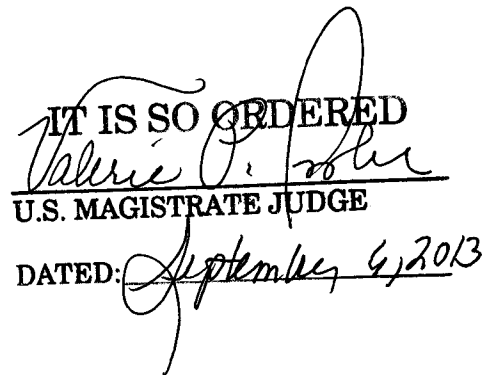 IT IS SO ORDERED
Valerie P. Cooke
U.S. MAGISTRATE JUDGE
DATED: September 2013